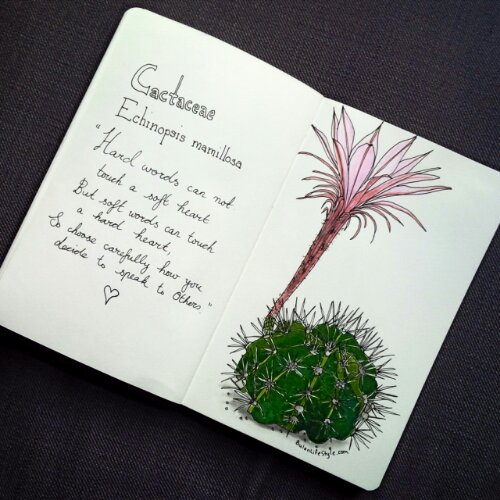 Cactaceae
Echinopsis mamillosa
"Hard words can not
touch a soft heart
But soft words can touch
a hard heart,
So choose carefully how you
decide to speak to Others."